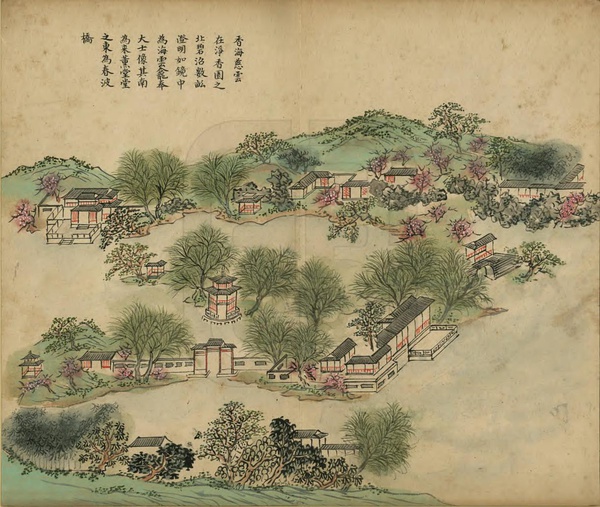 香海慈雲
在淨香園之
北碧沼數畝
澄明如鏡中
為海雲龕奉
大士像其南
為來薰堂堂
之東為春波
橋